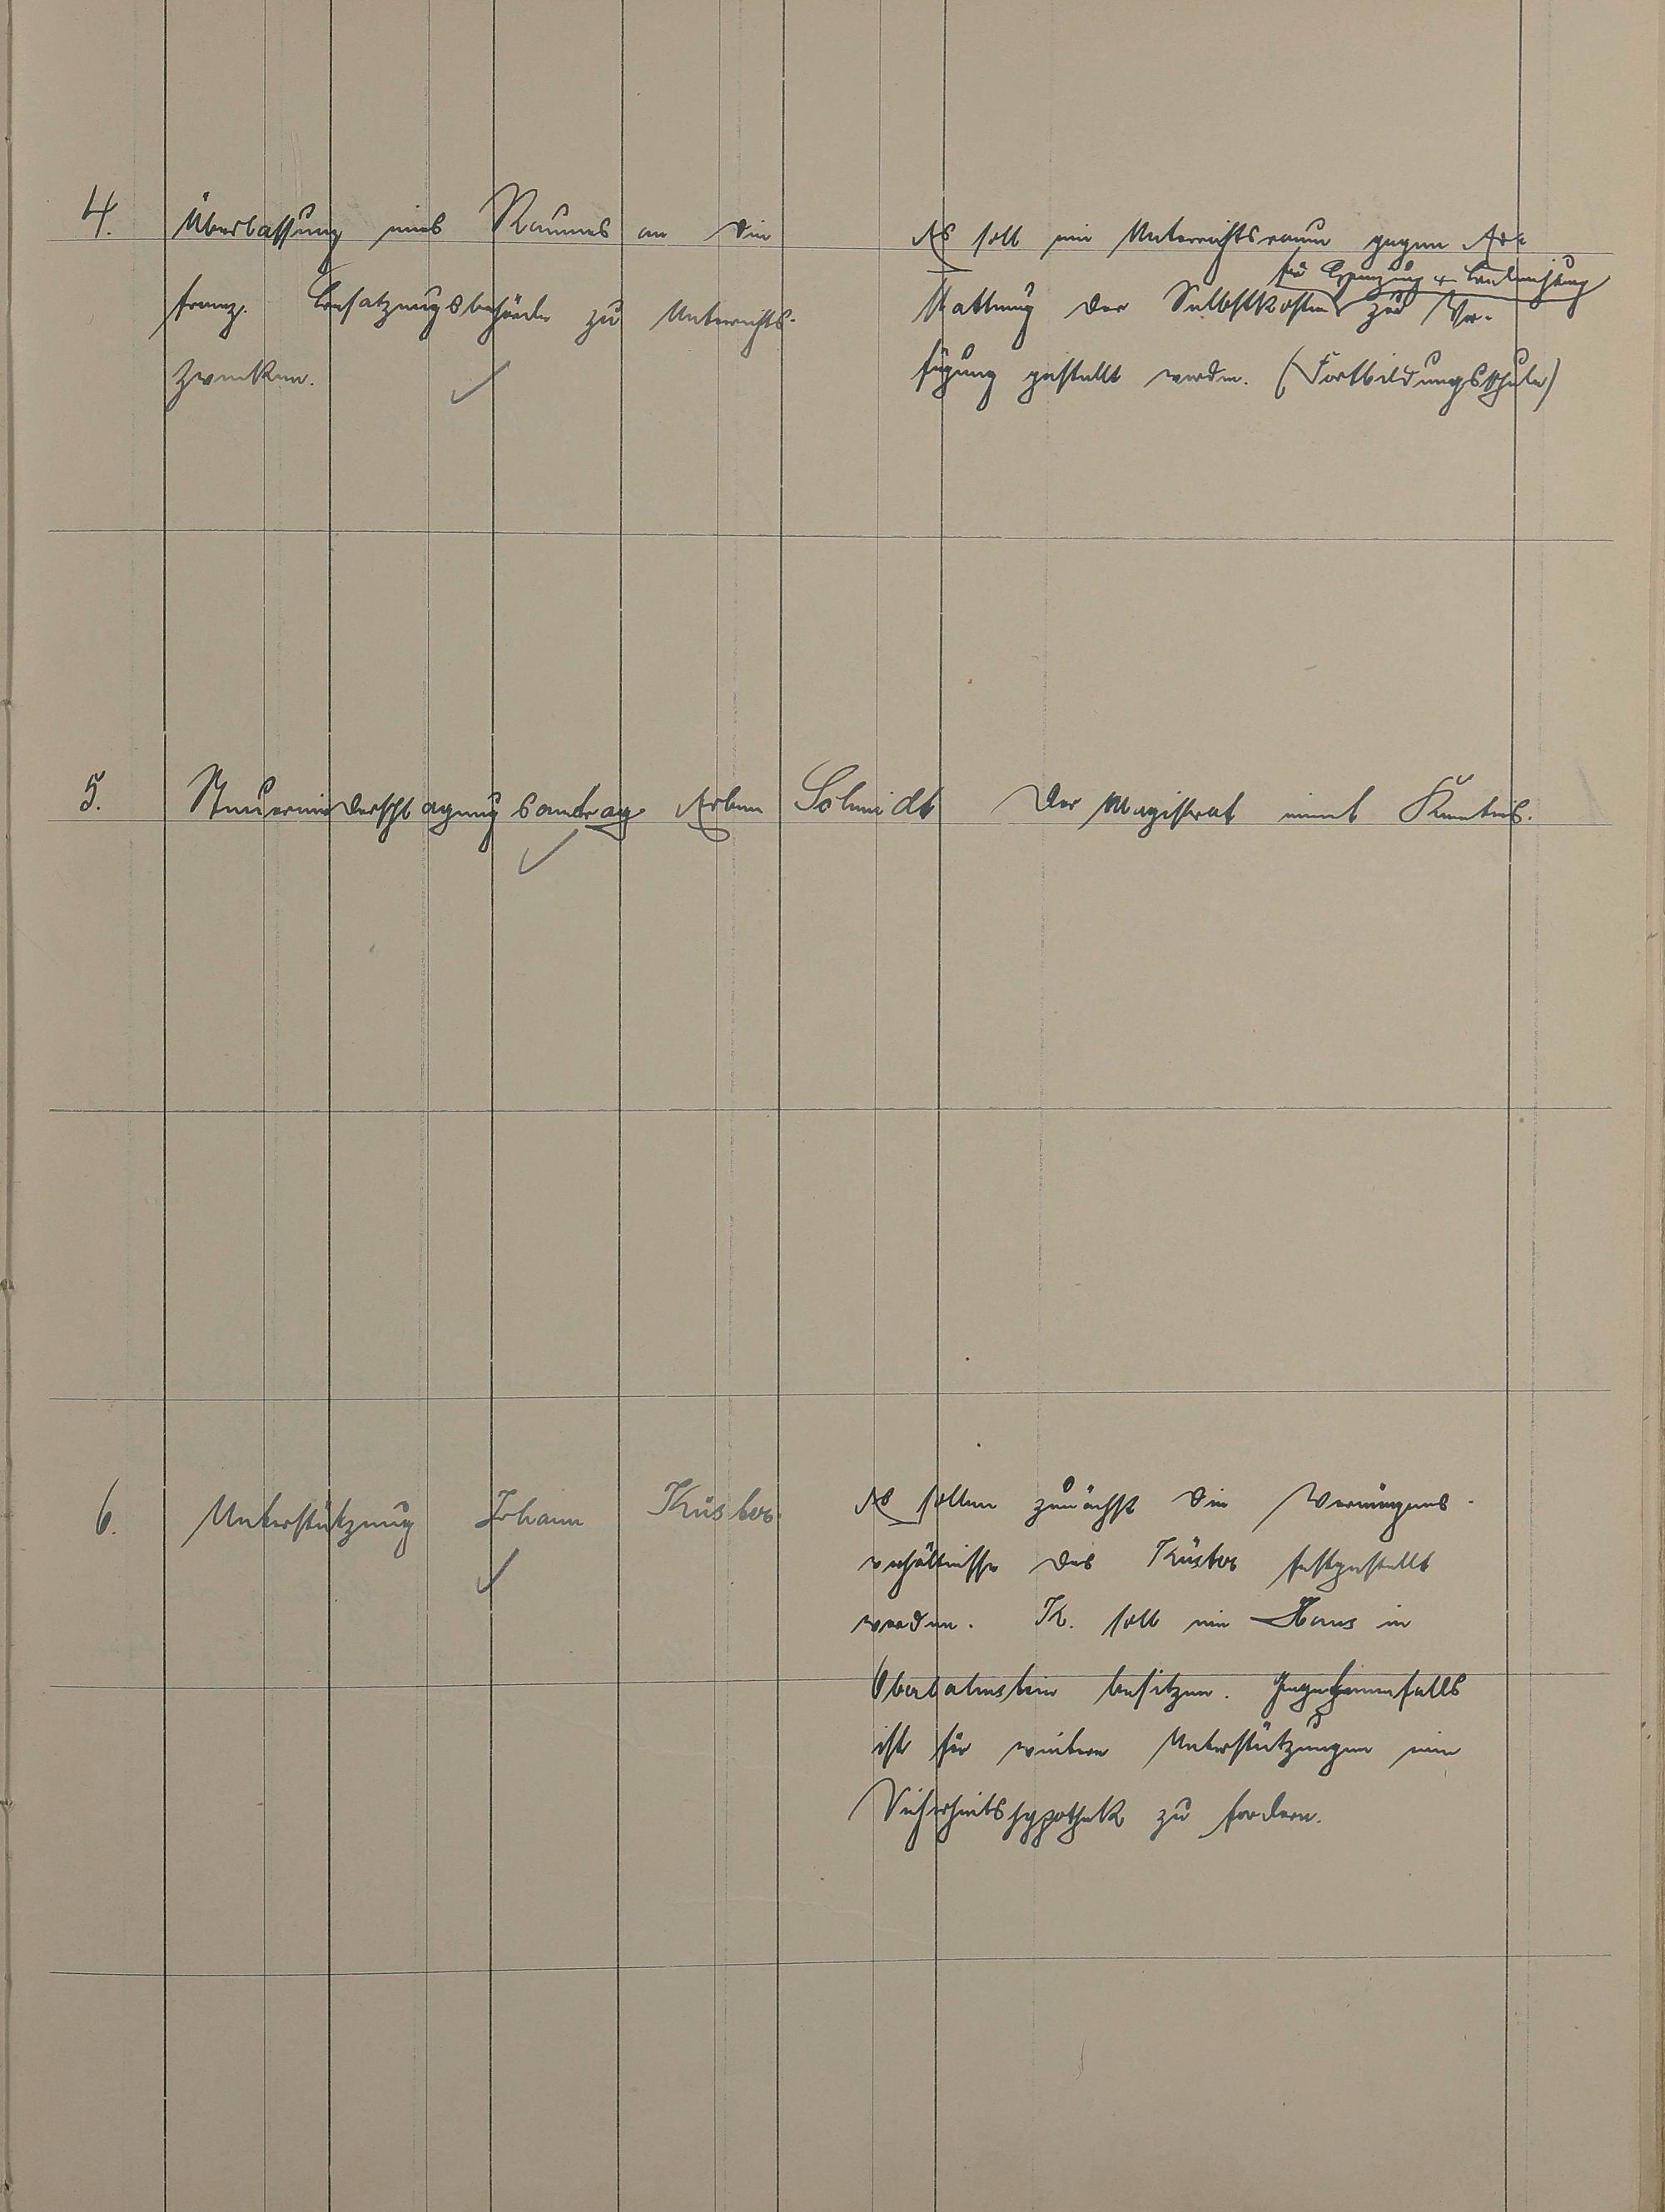 4. Überlassung eines Raumes an die
franz. Besatzungsbehörde zu Unterrichts-
zwecken.
Es soll ein Unterrichtsraum gegen Er-
für Heizung & Beleuchtung
stattung der Selbstkosten zur Ver-
fügung gestellt werden. (Fortbildungsschule)
5. Steuerniederschlagungsantrag Erben Schmidt
Der Magistrat nimt Kenntnis.
6. Unterstützung Johann Küster
Es sollen zunächst die Vermögens-
verhältnisse des Küster festgestellt
werden. K. soll ein Haus in
Oberlahnstein besitzen. Gegebenenfalls
ist für weitere Unterstützungen eine
Sicherheitshypothek zu fordern.